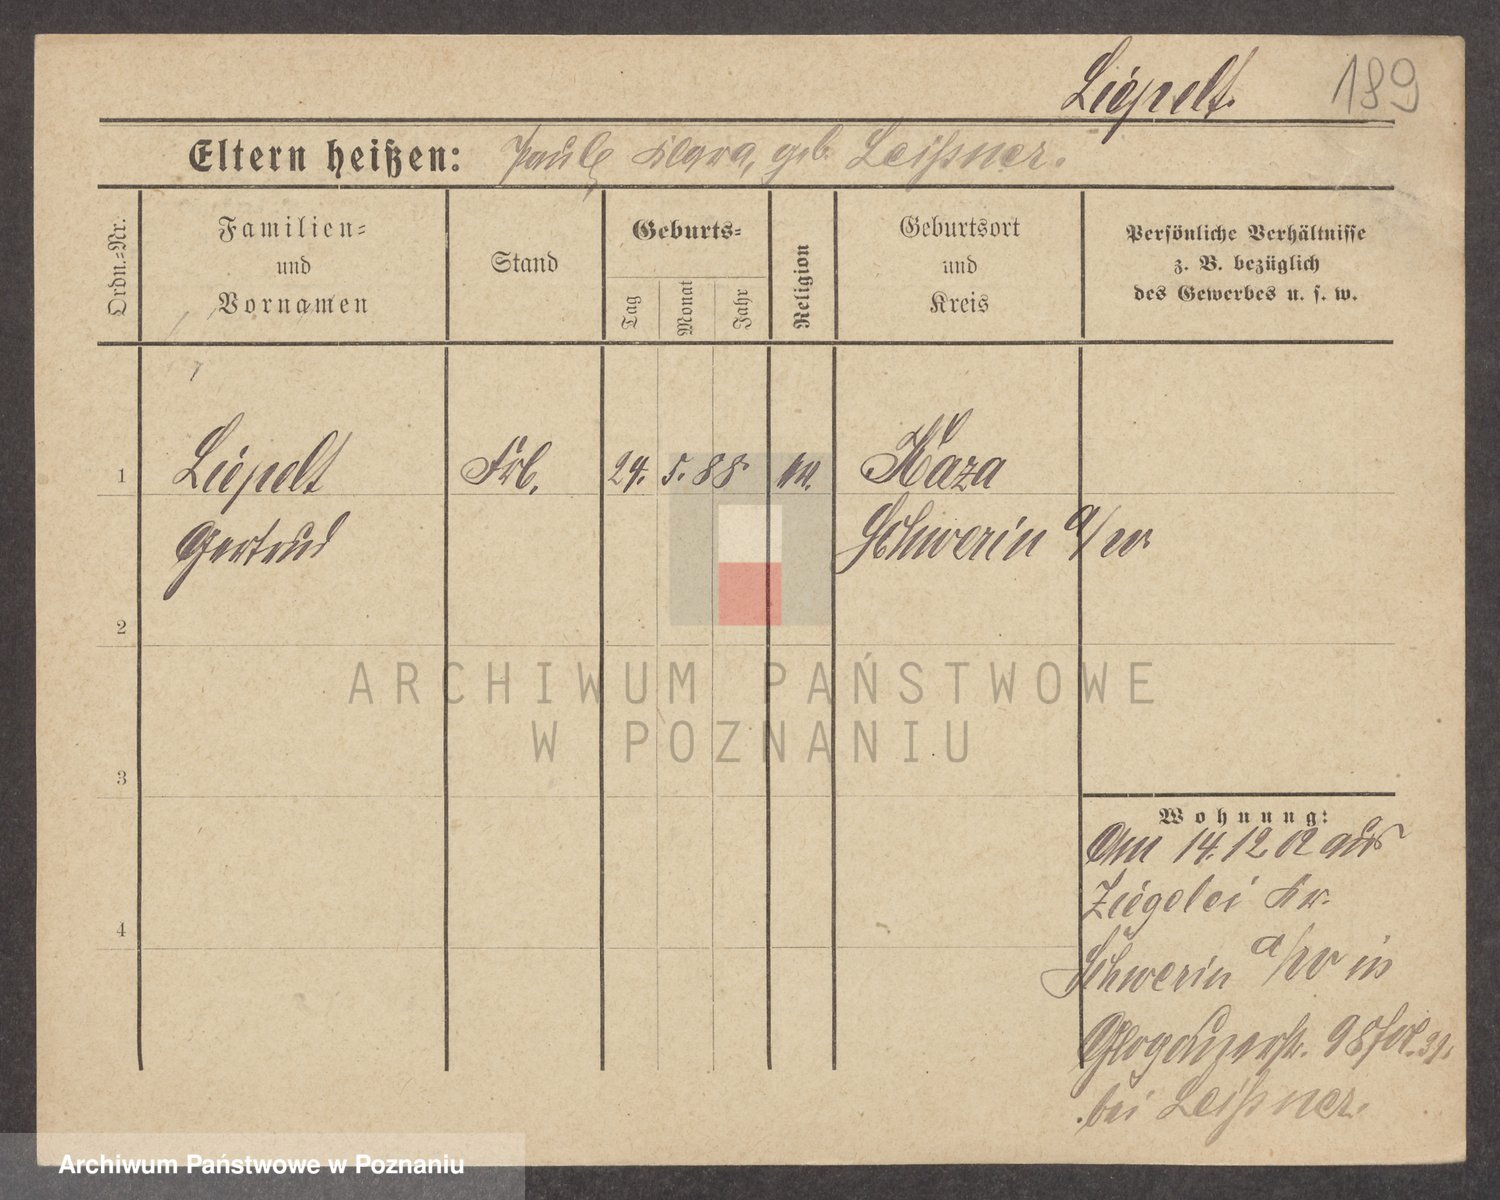 Liepelt.
189
Eltern heißen: Paul, Klara, geb. Leißner.
Ordn.=Nr.
Familien=
und
Vornamen
Stand
Geburts=
Tag
Monat
Jahr
Religion
Geburtsort
und
Kreis
Persönliche Verhältnisse
z. B. bezüglich
des Gewerbes u. s. w.
1
Liepelt
Gertrud
Frl.
24. 5. 88.
ev.
Schwerin a/W.
2
3
4
Wohnung:
Am 14.12.02 aus
Ziegelei Kr.
Schwerin a/W in
Glogauerstr. 98
bei Leißner.
ARCHIWUM PAŃSTWOWE
W POZNANIU
Archiwum Państwowe w Poznaniu